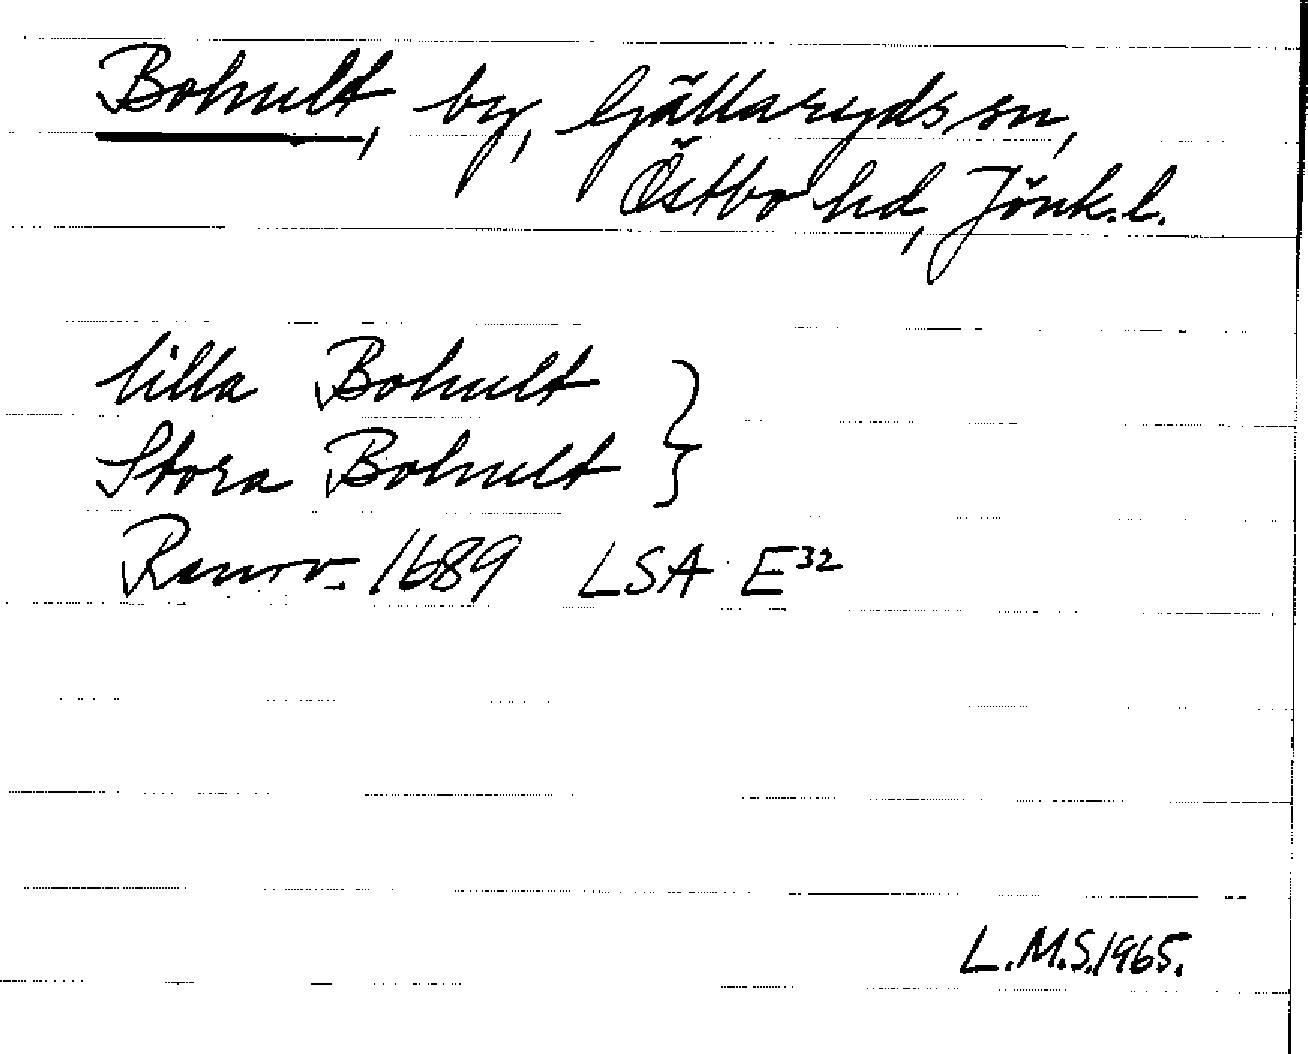 Bohult, by, Gällaryds sn,
Östbo hd, Jönk. l.
Lilla Bohult }
Stora Bohult }
Ransv. 1689 LSA E32
L.M.S. 1965.